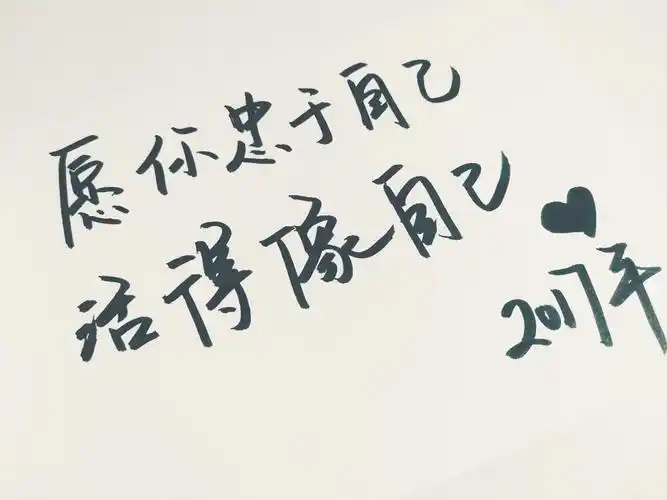 愿你忠于自己
活得像自己
2017年